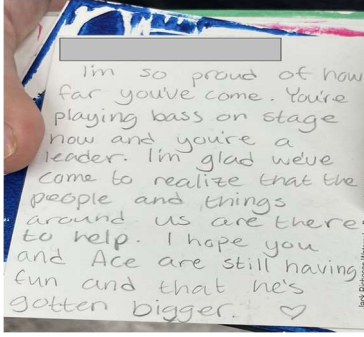 I'm so proud of how
far you've come. You're
playing bass on stage
now and you're a
leader. I'm glad we've
come to realize that the
people and things
around us are there
to help. I hope you
and Ace are still having
fun and that he's
gotten bigger. ♡